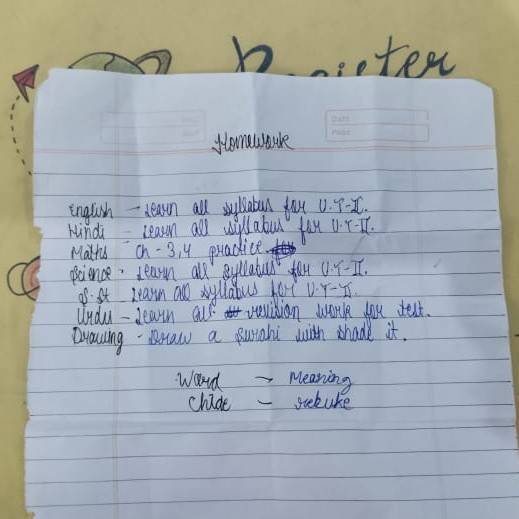 Register
DATE
PAGE
Homework
English - Learn all syllabus for U.T-II.
Hindi - Learn all syllabus for U.T-II.
Maths - Ch-3,4 practice
Science - Learn all syllabus for U.T-II.
S.St - Learn all syllabus for U.T-II.
Urdu - Learn all revision work for test.
Drawing - Draw a Surahi with shade it.
Word - Meaning
Chide - rebuke